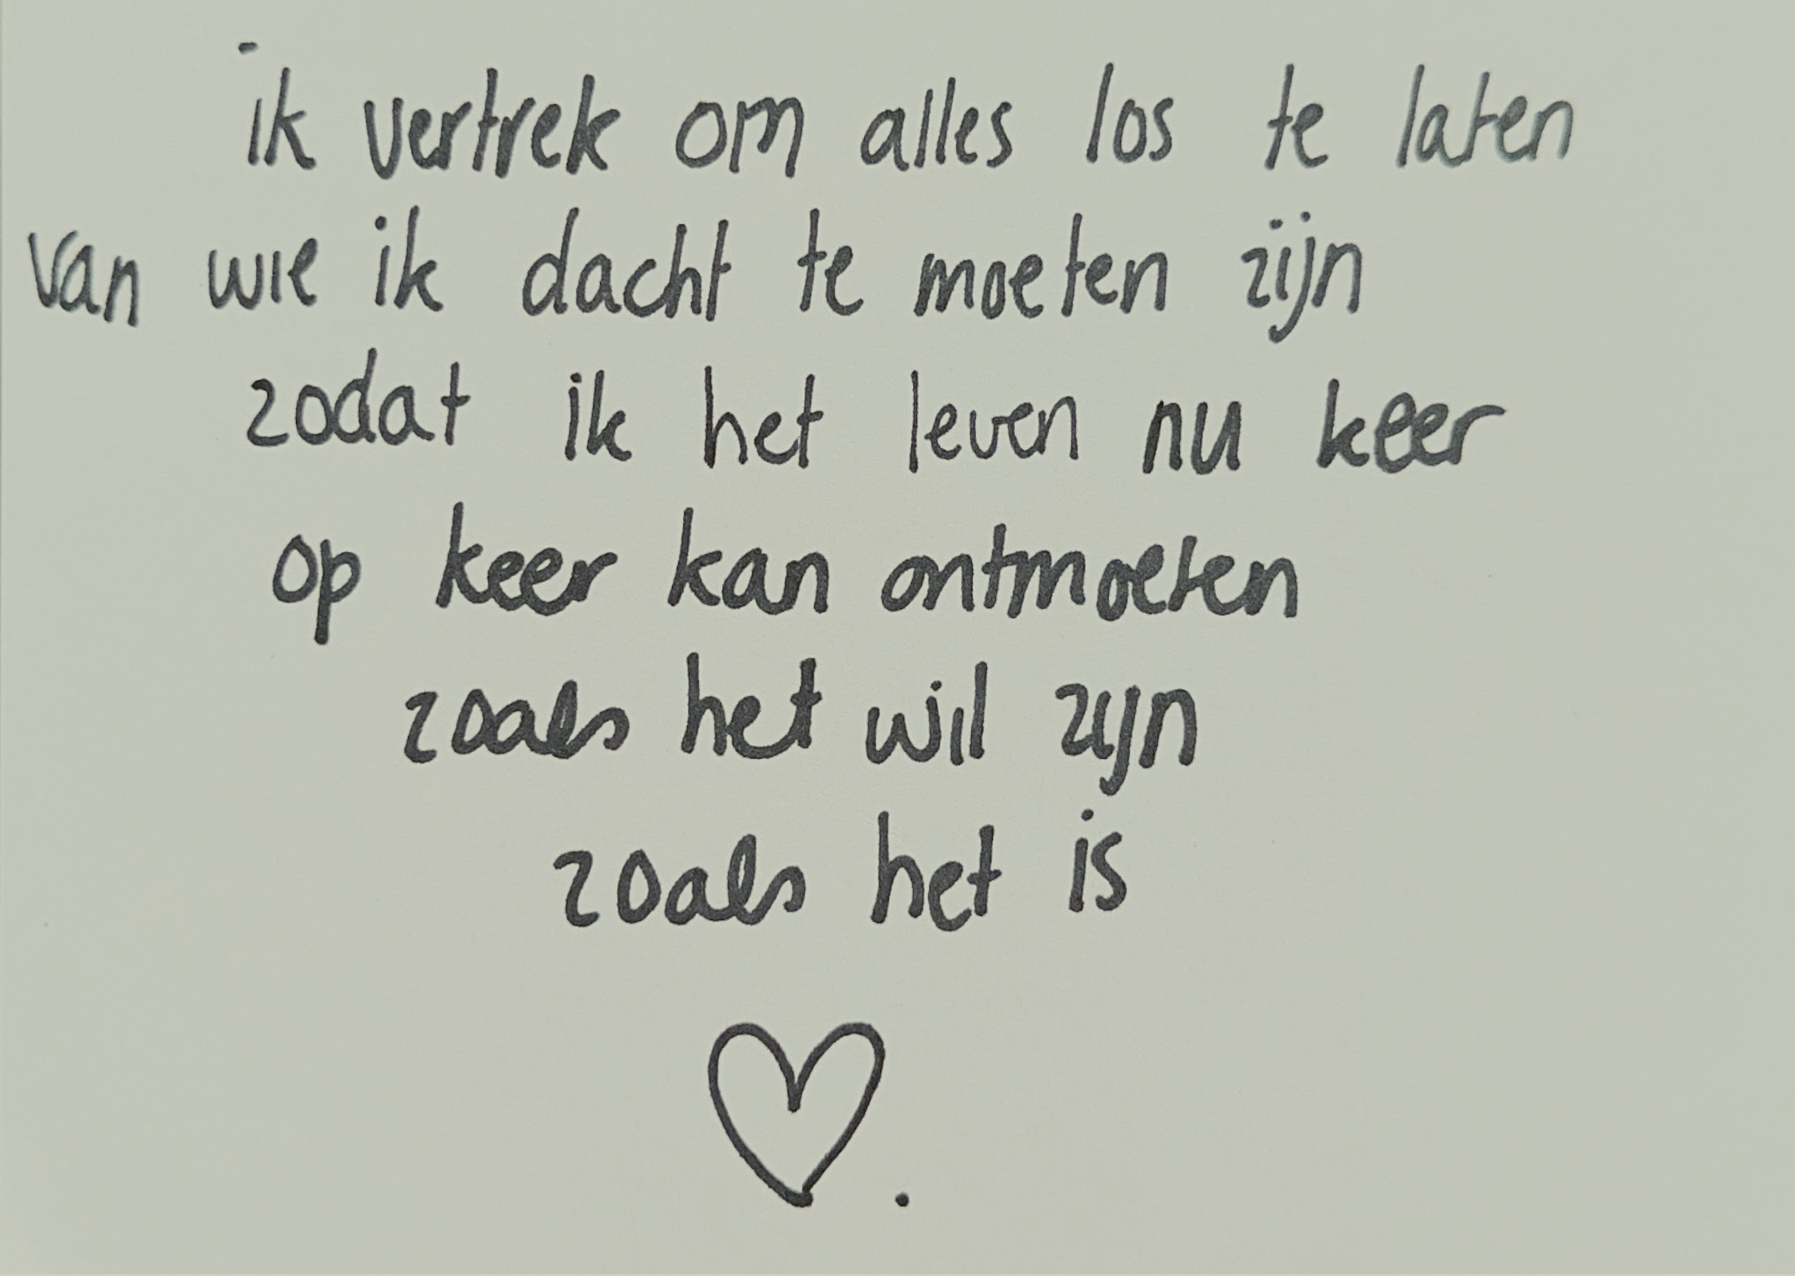 ik vertrek om alles los te laten
van wie ik dacht te moeten zijn
zodat ik het leven nu keer
op keer kan ontmoeten
zoals het wil zijn
zoals het is